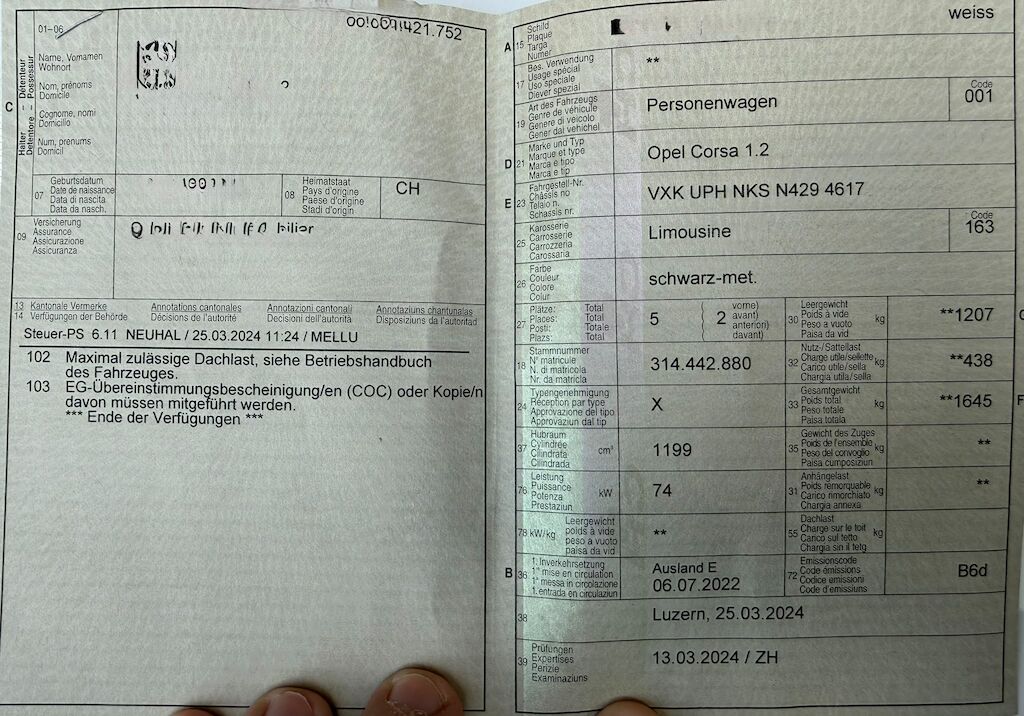 01-06
00!001!421.752
C
Halter - Détenteur
Detentore - Possessur
Name, Vornamen
Wohnort
Nom, prénoms
Domicile
Cognome, nomi
Domicilio
Num, prenums
Domicil
07
Geburtsdatum
Date de naissance
Data di nascita
Data da nasch.
08
Heimatstaat
Pays d'origine
Paese d'origine
Stadi d'origin
CH
09
Versicherung
Assurance
Assicurazione
Assicuranza
13 Kantonale Vermerke Annotations cantonales Annotazioni cantonali Annotaziuns chantunalas
14 Verfügungen der Behörde Décisions de l'autorité Decisioni dell'autorità Disposiziuns da l'autoritad
Steuer-PS 6.11 NEUHAL / 25.03.2024 11:24 / MELLU
102 Maximal zulässige Dachlast, siehe Betriebshandbuch
des Fahrzeuges.
103 EG-Übereinstimmungsbescheinigung/en (COC) oder Kopie/n
davon müssen mitgeführt werden.
*** Ende der Verfügungen ***
A 15
Schild
Plaque
Targa
Numer
weiss
17
Bes. Verwendung
Usage spécial
Uso speciale
Diever spezial
**
19
Art des Fahrzeugs
Genre de véhicule
Genere di veicolo
Gener dal vehichel
Personenwagen
Code
001
D 21
Marke und Typ
Marque et type
Marca e tipo
Marca e tip
Opel Corsa 1.2
E 23
Fahrgestell-Nr.
Châssis no
Telaio n.
Schassis nr.
VXK UPH NKS N429 4617
25
Karosserie
Carrosserie
Carrozzeria
Carossaria
Limousine
Code
163
26
Farbe
Couleur
Colore
Colur
schwarz-met.
27
Plätze: Total
Places: Total
Posti: Totale
Plazs: Total
5
2
vorne)
avant)
anteriori)
davant)
30
Leergewicht
Poids à vide
Peso a vuoto
Paisa da vid
kg
**1207
18
Stammnummer
N° matricule
N. di matricola
Nr. da matricla
314.442.880
32
Nutz-/Sattellast
Charge utile/sellette
Carico utile/sella
Chargia utila/sella
kg
**438
24
Typengenehmigung
Réception par type
Approvazione del tipo
Approvaziun dal tip
X
33
Gesamtgewicht
Poids total
Peso totale
Paisa totala
kg
**1645
F
37
Hubraum
Cylindrée
Cilindrata
Cilindrada
cm³
1199
35
Gewicht des Zuges
Poids de l'ensemble
Peso del convoglio
Paisa cumposiziun
kg
**
76
Leistung
Puissance
Potenza
Prestaziun
kW
74
31
Anhängelast
Poids remorquable
Carico rimorchiato
Chargia annexa
kg
**
78 kW/kg
Leergewicht
poids à vide
peso a vuoto
paisa da vid
**
55
Dachlast
Charge sur le toit
Carico sul tetto
Chargia sin il tetg
kg
B 36
1. Inverkehrsetzung
1re mise en circulation
1a messa in circolazione
1. entrada en circulaziun
Ausland E
06.07.2022
72
Emissionscode
Code émissions
Codice emissioni
Code d'emissiuns
B6d
38
Luzern, 25.03.2024
39
Prüfungen
Expertises
Perizie
Examinaziuns
13.03.2024 / ZH